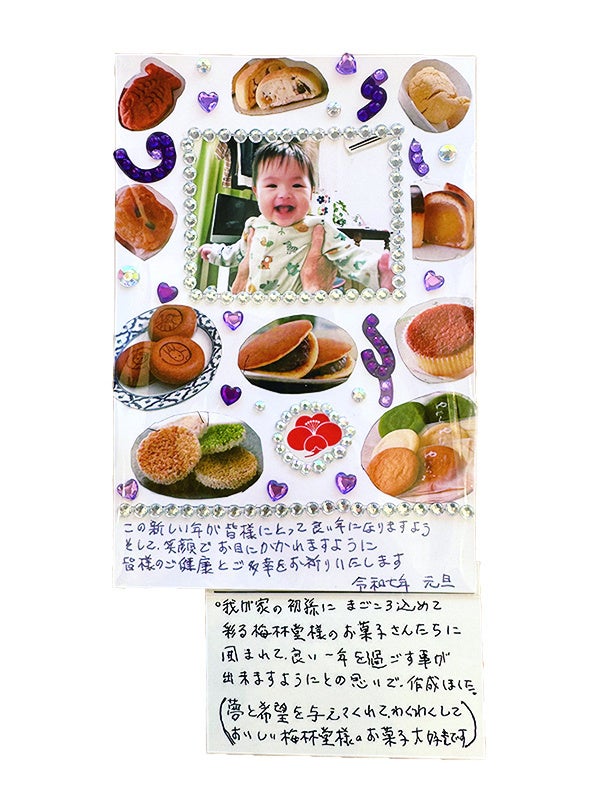 この新しい年が皆様にとって良い年になりますよう
そして、笑顔でお目にかかれますように
皆様のご健康とご多幸をお祈りいたします
令和七年 元旦
。我が家の初孫に まごころ込めて
彩る梅林堂様のお菓子さんたちに
囲まれて、良い一年を過ごす事が
出来ますようにとの思いで、作成しました。
(夢と希望を与えてくれて、わくわくして
おいしい梅林堂様のお菓子大好きです)